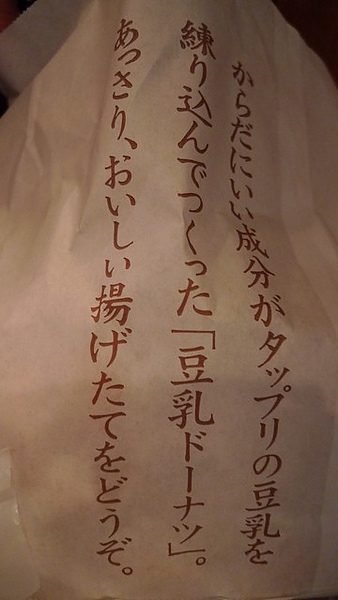 からだにいい成分がタップリの豆乳を
練り込んでつくった「豆乳ドーナツ」。
あっさり、おいしい揚げたてをどうぞ。